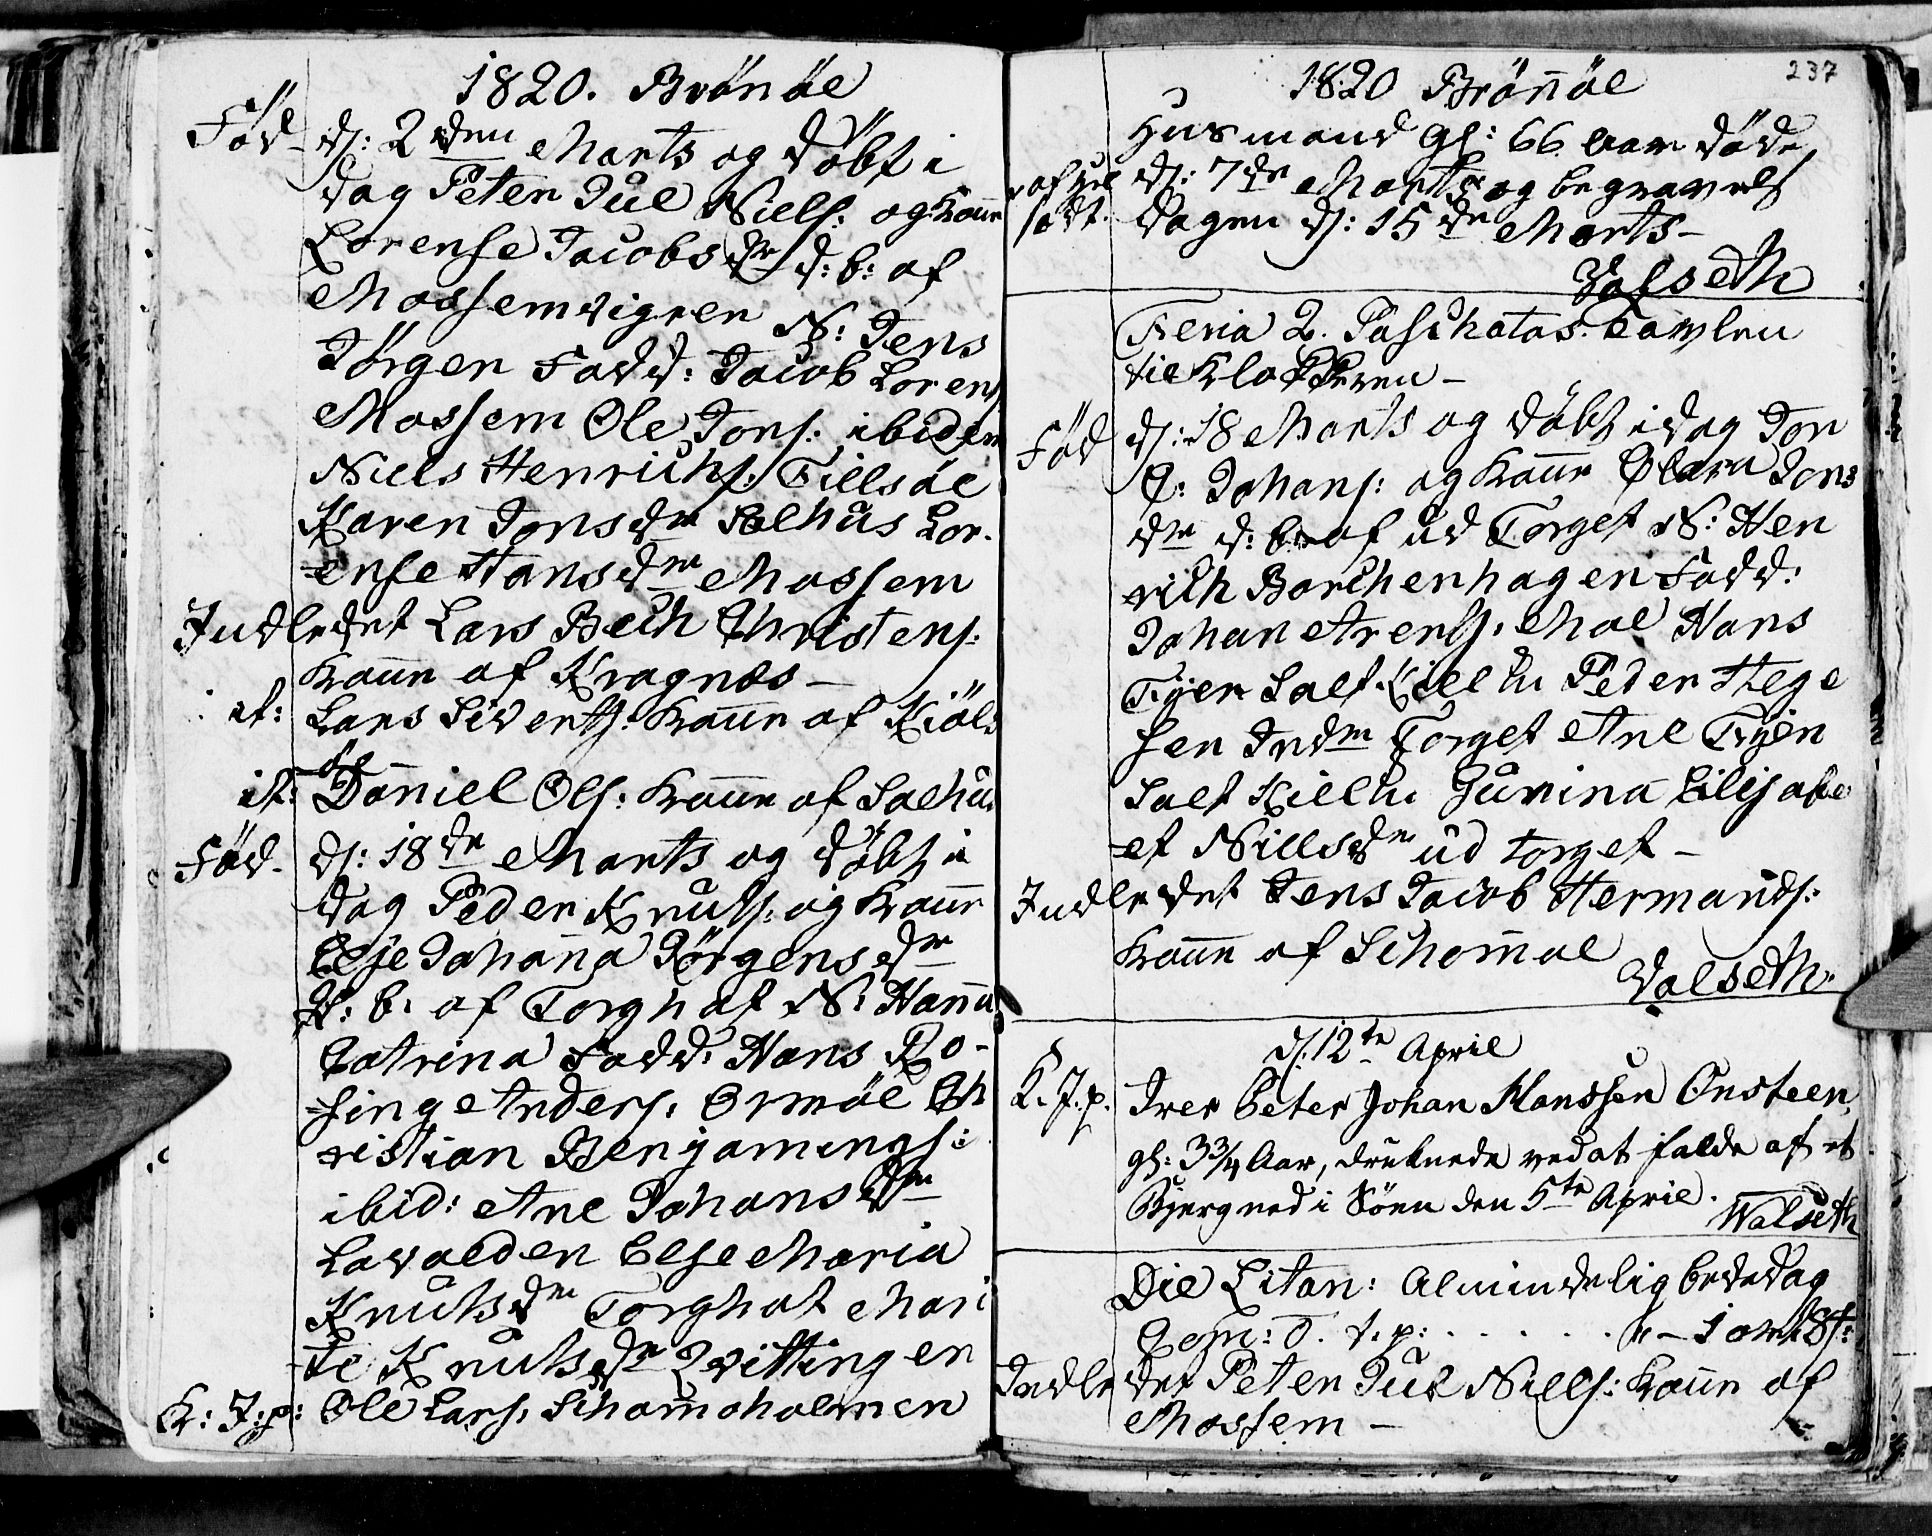 1820. Brönöe
Fød d: 2den Marts og döbt i
dag Peter Juel Niels: og Kone
Lorense Jacobsdr d: b: af
Mossemvigren N: Jens
Jörgen Fadd: Jacob Lorens
Mossem Ole Jons: ibidem
Niels Henrichs: Tillsöe
Karen Jonsdr Salhus Lor-
ense Hansdr Mossem
Indledet Lars Bech Christens:
Kone af Kragnæs –
it: Lars Siverts: Kone af Kiöls
öe
it: Daniel Ols: Kone af Salhus
Fød- d: 18de Marts og döbt i
dag Peder Knuts: og Kone
Else Johanna Jörgensdr
d: b: af Torghat N: Hanna
Catrina Fadd: Hans Ro-
sing Anders: Ormöe Ch
ristian Benjamings:
ibid: Ane Johansdr
Lavalden Else Maria
Knutsdr Torghat Mari
te Knutsdr Qvittingen
K: J: p: Ole Lars: Schomoholmen
237
1820 Brönöe
Husmand gl: 66 Aar döde
d: 7de Marts og begravels
dagen d: 15de Marts –
Valseth
Feria 2. Paschatos. Tavlen
til Klokkeren –
Fød d: 18 Marts og döbt i dag Jon
Johans: og Kone Olava Jons
dr d: b: af ud Torget N: Hen
rich Borchenhagen Fadd:
Johan Arents: Moe Hans
Tijer Salt Kiella Peder Hege
sen Indm Torget Ane Tijer
Salt Kiella Gurina Elisabe
et Nillsdr ud torget –
Indledet Jens Jacob Hermands:
Kone af Schomoe
Valseth.
d: 12te April
K. J. p. Iver Peter Johan Hanssen Onsteen,
gl: 3 3/4 Aar, druknede ved at falde af et
Bjerg ned i Söen den 5te April.
Walseth
Die Litan: Almindelig bededag
Indledet Peter Juel Niels: Kone af
Mossem –